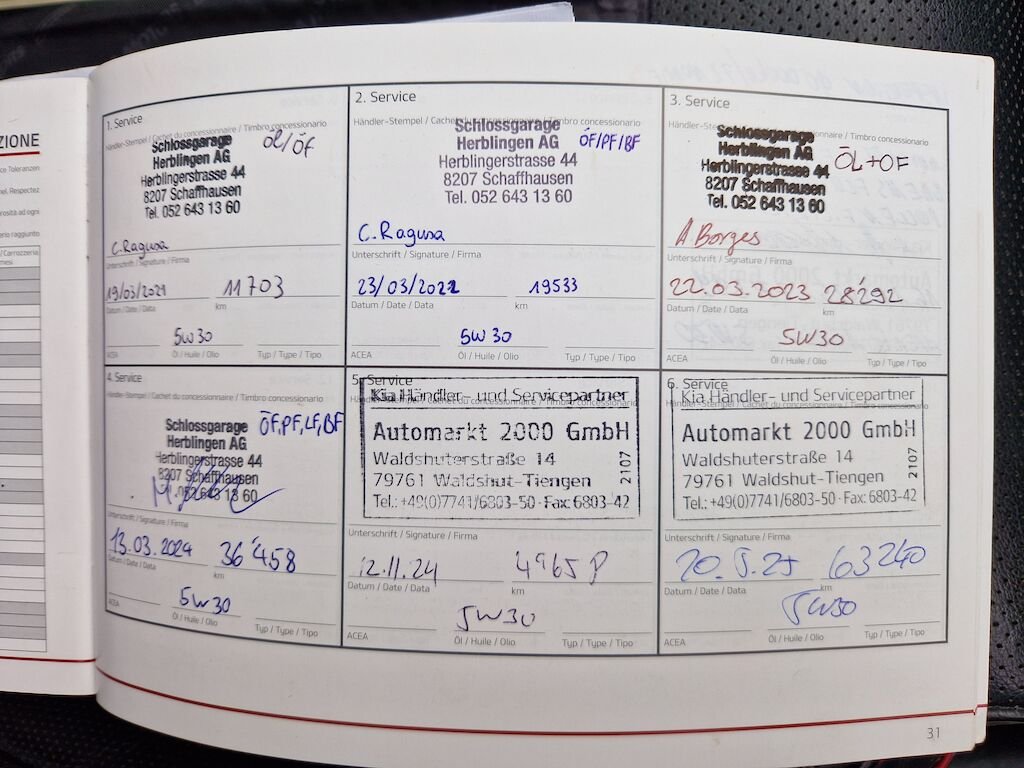 ZIONE
1. Service
Händler-Stempel / Cachet du concessionnaire / Timbro concessionario
Schlossgarage
Herblingen AG
Herblingerstrasse 44
8207 Schaffhausen
Tel. 052 643 13 60
ÖL/ÖF
C. Ragusa
Unterschrift / Signature / Firma
19/03/2021 11703
Datum / Date / Data km
5W30
ACEA Öl / Huile / Olio Typ / Type / Tipo
2. Service
Händler-Stempel / Cachet du concessionnaire / Timbro concessionario
Schlossgarage
Herblingen AG
Herblingerstrasse 44
8207 Schaffhausen
Tel. 052 643 13 60
ÖF/PF/BF
C. Ragusa
Unterschrift / Signature / Firma
23/03/2022 19533
Datum / Date / Data km
5W30
ACEA Öl / Huile / Olio Typ / Type / Tipo
3. Service
Händler-Stempel / Cachet du concessionnaire / Timbro concessionario
Schlossgarage
Herblingen AG
Herblingerstrasse 44
8207 Schaffhausen
Tel. 052 643 13 60
ÖL+ÖF
A. Borges
Unterschrift / Signature / Firma
22.03.2023 28'292
Datum / Date / Data km
5W30
ACEA Öl / Huile / Olio Typ / Type / Tipo
4. Service
Händler-Stempel / Cachet du concessionnaire / Timbro concessionario
Schlossgarage
Herblingen AG
Herblingerstrasse 44
8207 Schaffhausen
Tel. 052 643 13 60
ÖF,PF,LF,BF
Unterschrift / Signature / Firma
13.03.2024 36'458
Datum / Date / Data km
5W30
ACEA Öl / Huile / Olio Typ / Type / Tipo
5. Service
Händler-Stempel / Cachet du concessionnaire / Timbro concessionario
Kia Händler- und Servicepartner
Automarkt 2000 GmbH
Waldshuterstraße 14
79761 Waldshut-Tiengen
Tel.: +49(0)7741/6803-50 · Fax: 6803-42
2107
Unterschrift / Signature / Firma
12.11.24
Datum / Date / Data km
5W30
ACEA Öl / Huile / Olio Typ / Type / Tipo
6. Service
Händler-Stempel / Cachet du concessionnaire / Timbro concessionario
Kia Händler- und Servicepartner
Automarkt 2000 GmbH
Waldshuterstraße 14
79761 Waldshut-Tiengen
Tel.: +49(0)7741/6803-50 · Fax: 6803-42
2107
Unterschrift / Signature / Firma
20.5.25 63240
Datum / Date / Data km
5W30
ACEA Öl / Huile / Olio Typ / Type / Tipo
31